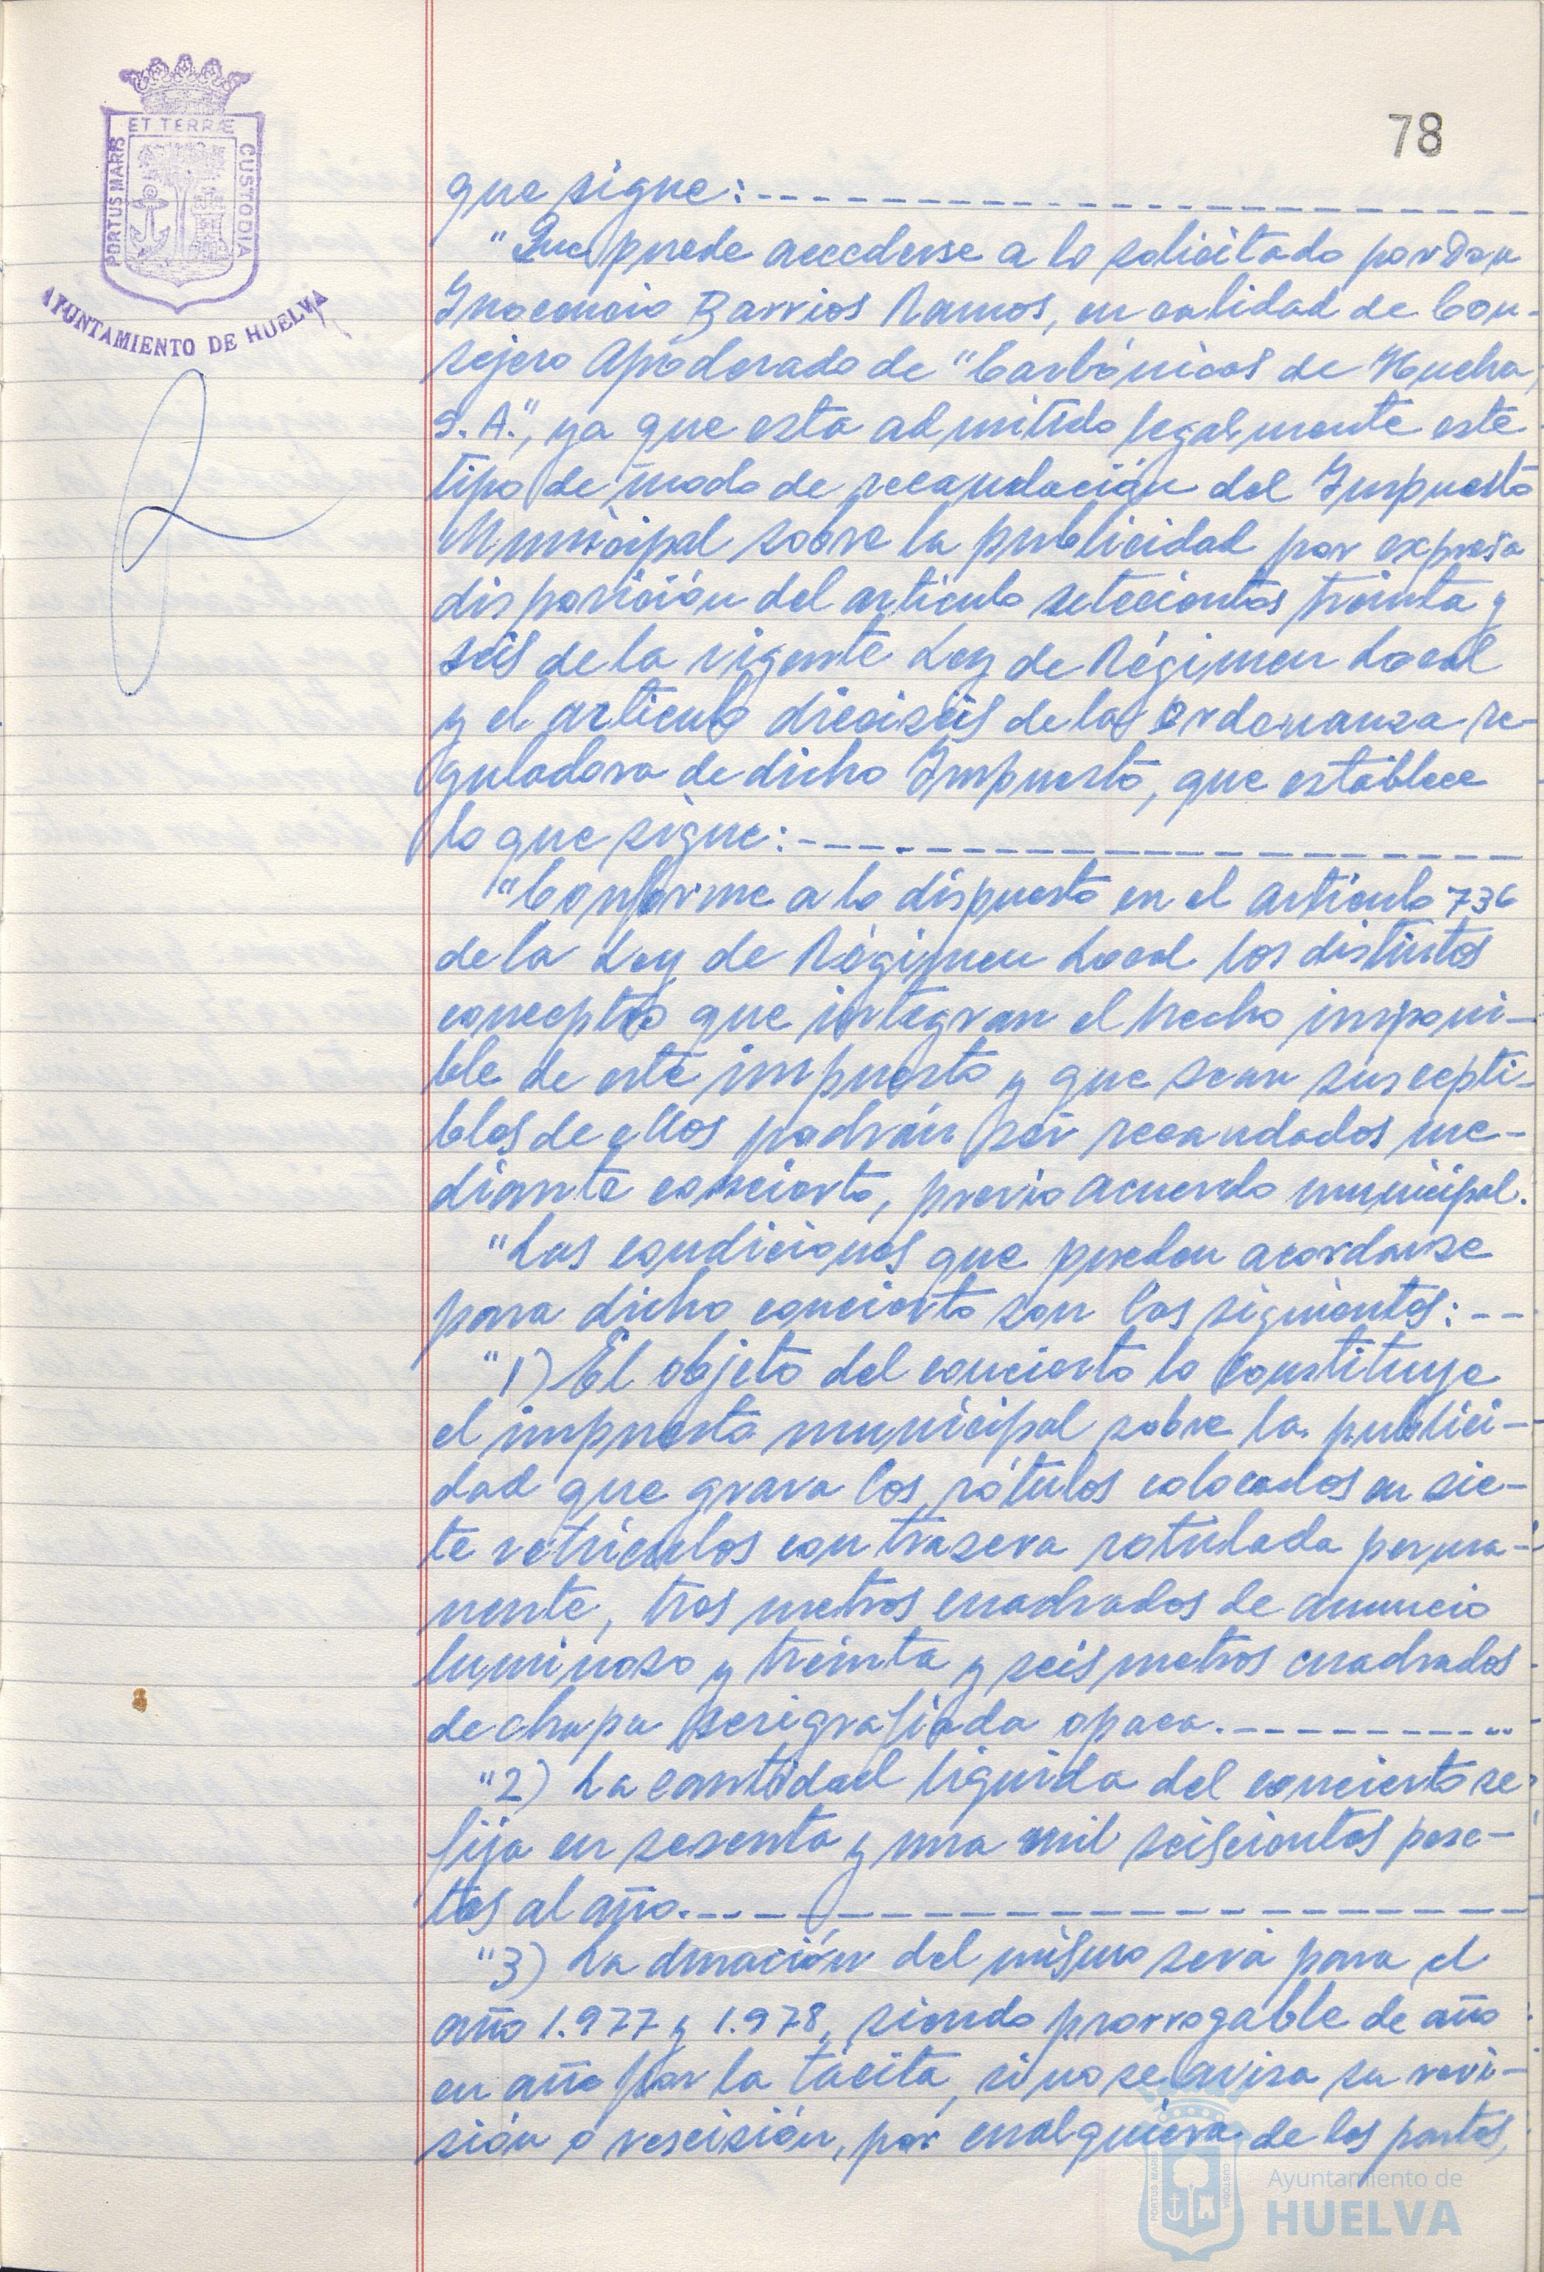 ET TERRÆ
PORTUS MARIS
CUSTODIA
AYUNTAMIENTO DE HUELVA
78
que sigue:
"Que puede accederse a lo solicitado por Don
Inocencio Barrios Ramos, en calidad de Con-
sejero Apoderado de "Carbónicas de Huelva,
S.A.", ya que esta admitido legalmente este
tipo de modo de recaudación del Impuesto
Municipal sobre la publicidad por expresa
disposición del artículo setecientos treinta y
seis de la vigente Ley de Régimen Local
y el artículo dieciseis de la Ordenanza re-
guladora de dicho Impuesto, que establece
lo que sigue:
"Conforme a lo dispuesto en el artículo 736
de la Ley de Régimen Local los distintos
conceptos que integran el hecho imponi-
ble de este impuesto y que sean suscepti-
bles de ellos podrán ser recaudados me-
diante concierto, previo acuerdo municipal.
"Las condiciones que pueden acordarse
para dicho concierto son las siguientes: --
"1) El objeto del concierto lo constituye
el impuesto municipal sobre la publici-
dad que grava los rótulos colocados en sie-
te vehículos con trasera rotulada perma-
nente, tres metros cuadrados de anuncio
luminoso y treinta y seis metros cuadrados
de chapa serigrafiada opaca.
"2) La cantidad líquida del concierto se
fija en sesenta y una mil seiscientas pese-
tas al año.
"3) La duración del mismo será para el
año 1.977 y 1.978, siendo prorrogable de año
en año por la tácita, si no se avisa su revi-
sión o rescisión, por cualquiera de las partes,
PORTUS MARIS
CUSTODIA
Ayuntamiento de
HUELVA